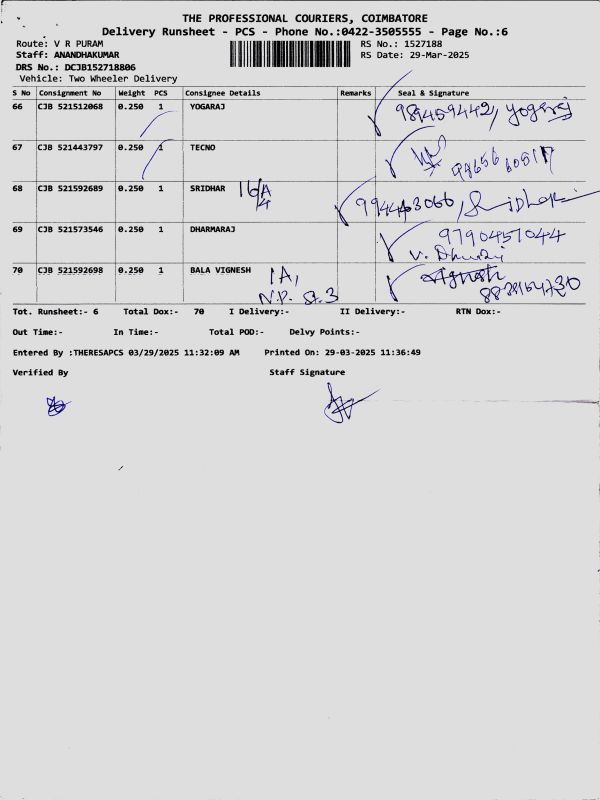 THE PROFESSIONAL COURIERS, COIMBATORE
Delivery Runsheet - PCS - Phone No.:0422-3505555 - Page No.:6
Route: V R PURAM RS No.: 1527188
Staff: ANANDHAKUMAR RS Date: 29-Mar-2025
DRS No.: DCJB152718806
Vehicle: Two Wheeler Delivery
S No Consignment No Weight PCS Consignee Details Remarks Seal & Signature
66 CJB 521512068 0.250 1 YOGARAJ 989459442, yogaraj
67 CJB 521443797 0.250 1 TECNO
68 CJB 521592689 0.250 1 SRIDHAR 16/A
4
69 CJB 521573546 0.250 1 DHARMARAJ 9790457044
V.
70 CJB 521592698 0.250 1 BALA VIGNESH 1A, Vignesh
N.P. St. 3
Tot. Runsheet:- 6 Total Dox:- 70 I Delivery:- II Delivery:- RTN Dox:-
Out Time:- In Time:- Total POD:- Delvy Points:-
Entered By :THERESAPCS 03/29/2025 11:32:09 AM Printed On: 29-03-2025 11:36:49
Verified By Staff Signature